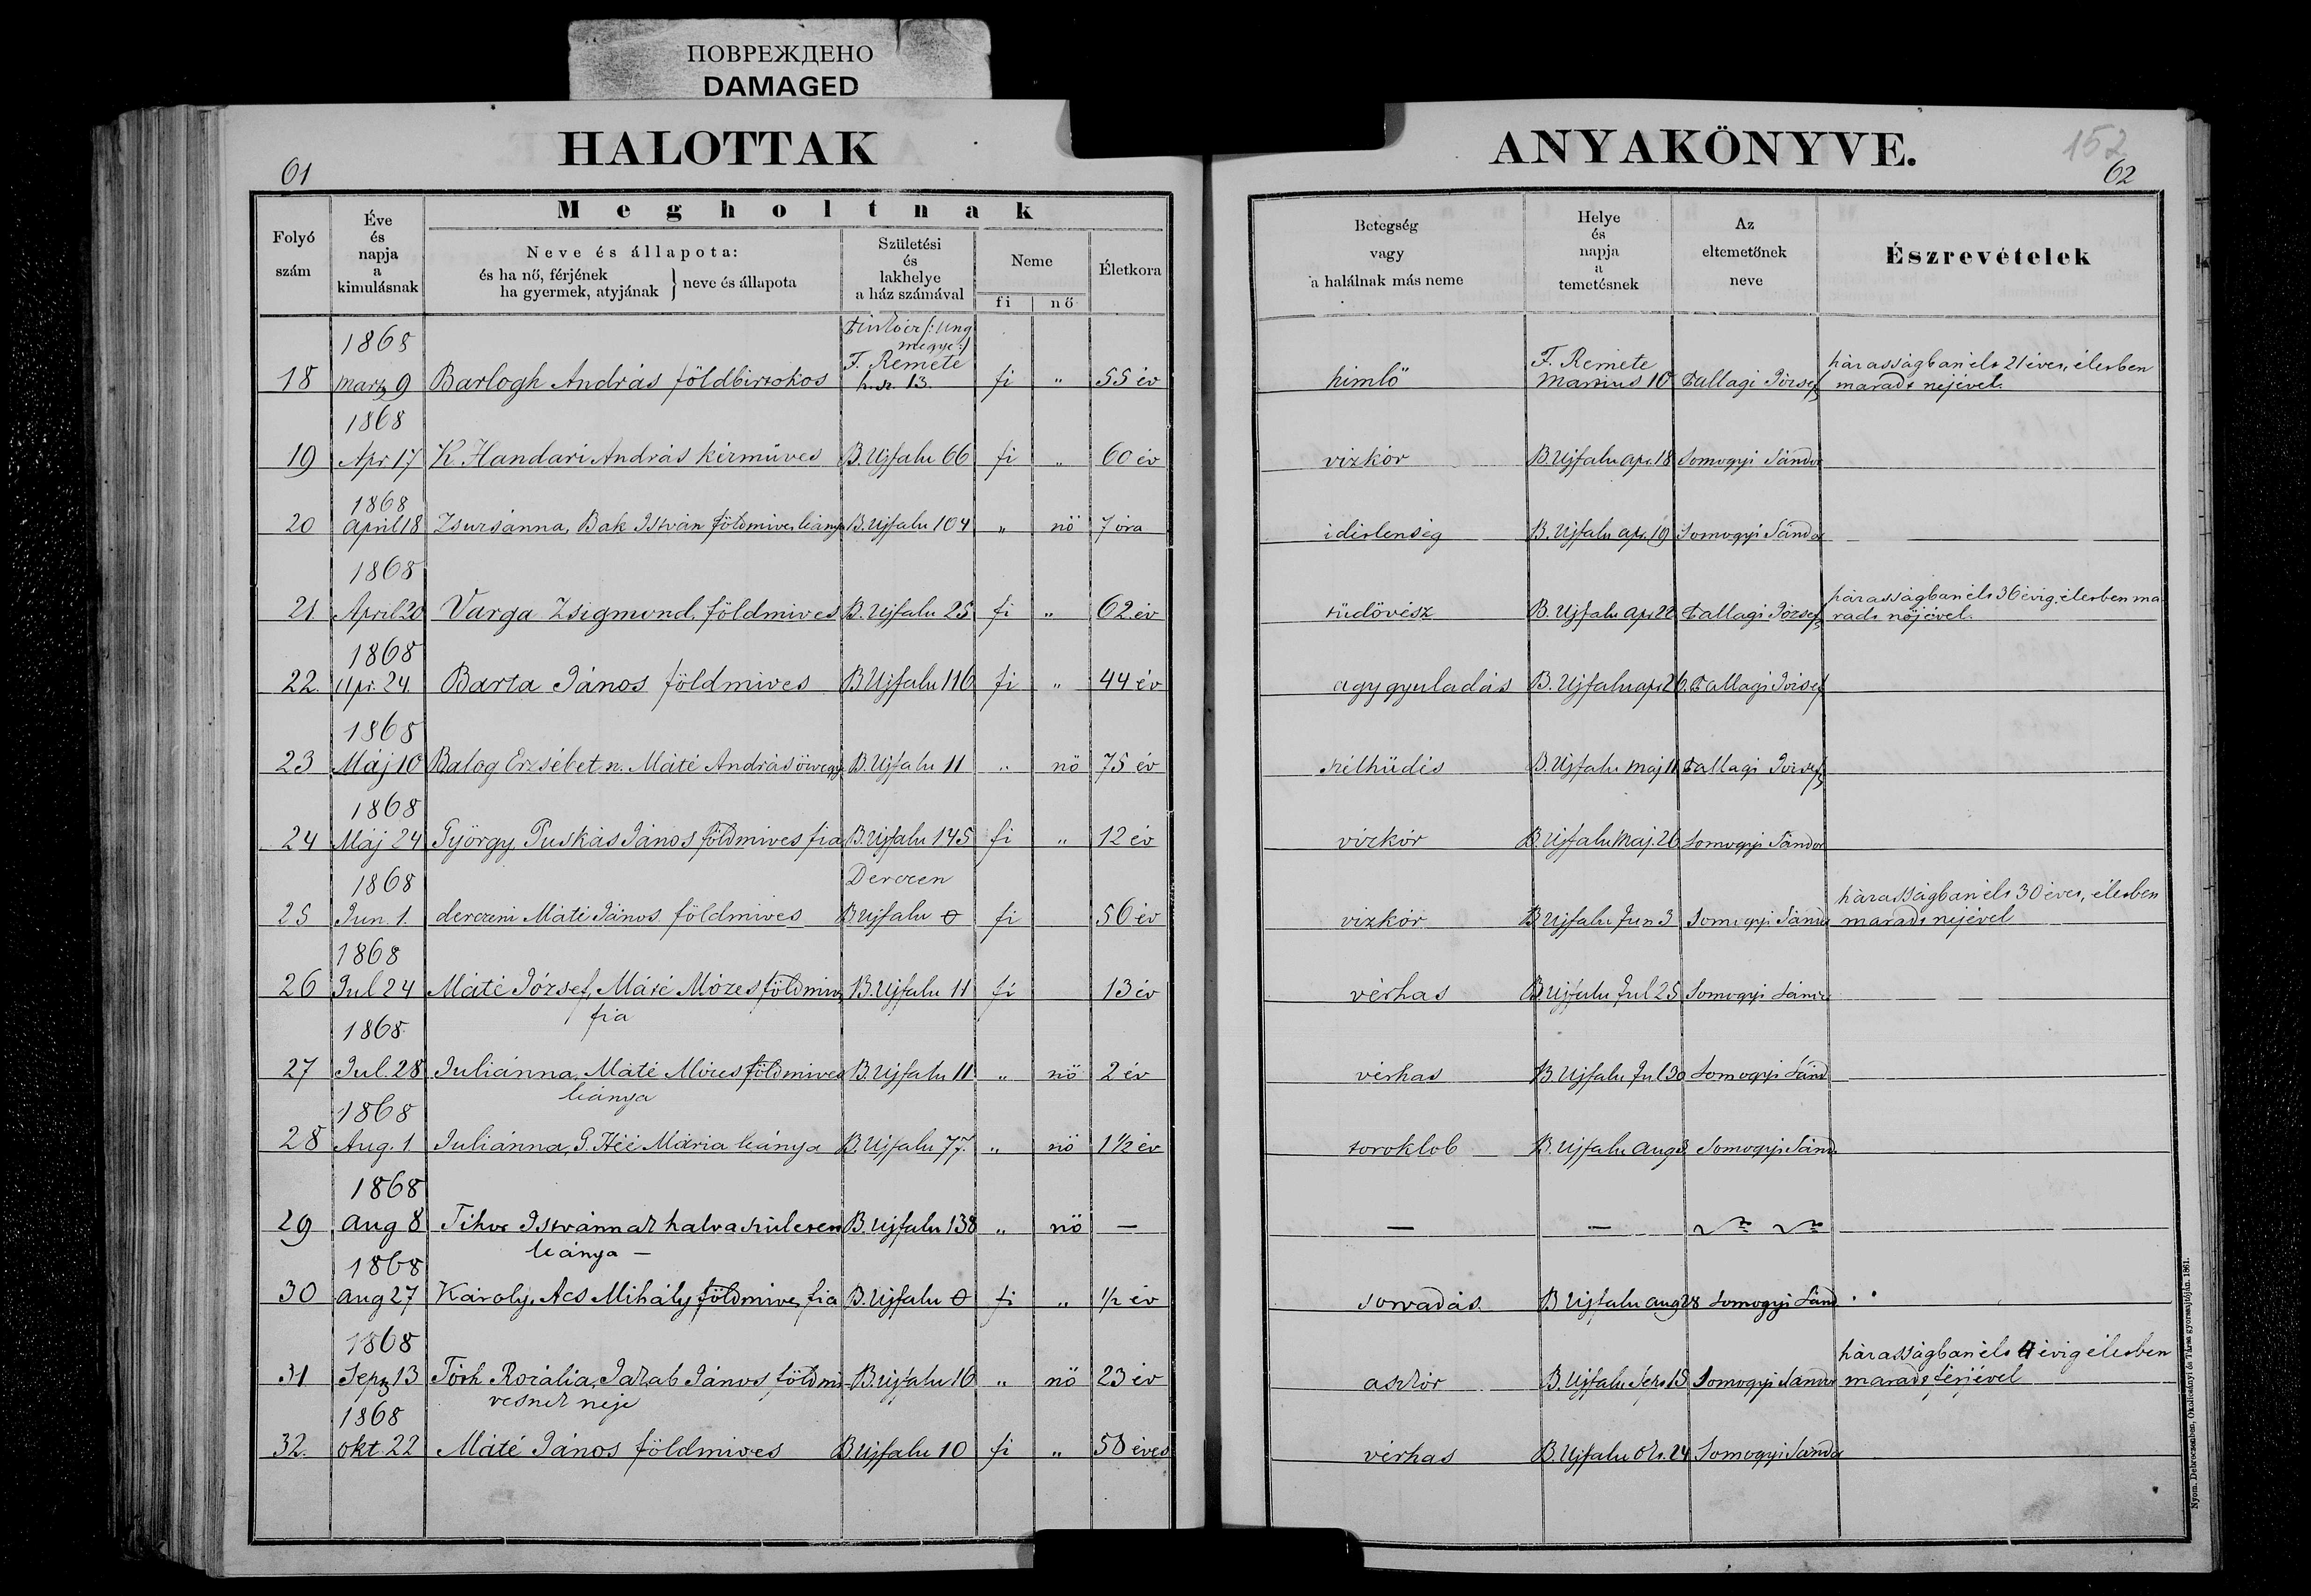 ПОВРЕЖДЕНО
DAMAGED
HALOTTAK
ANYAKÖNYVE.
152
61
62
Folyó szám
Éve és napja a kimulásnak
Megholtnak
Neve és állapota:
és ha nő, férjének
ha gyermek, atyjának } neve és állapota
Születési és lakhelye a ház számával
Neme
fi nő
Életkora
Betegség vagy a halálnak más neme
Helye és napja a temetésnek
Az eltemetőnek neve
Észrevételek
1868 (: Ung megye :)
F. Remete F. Remete házasságban élt 21 éves, életben
18 marz 9 Barlogh András földbirtokos h. sz. 13. fi " 55 év himlő Martius 10 Tallagi József maradt nejével.
1868
19 Apr 17 K. Handari András kézmüves B. Ujfalu 66 fi " 60 év vizkór B Ujfalu apr. 18 Somogyi Sándor
1868
20 April 18 Zsuzsánna, Bak István földmives leánya B. Ujfalu 104 " nő 7 óra idétlenség B. Ujfalu apr. 19 Somogyi Sándor
1868 házasságban élt 36 évig, életben ma
21. April 20 Varga Zsigmond, földmives B. Ujfalu 25 fi " 62 év tüdővész B. Ujfalu apr 22 Tallagi József radt nőjével.
1868
22. Apr. 24. Barta János földmives B Ujfalu 116 fi " 44 év agygyuladás B. Ujfalu apr 26. Tallagi József
1868
23 Máj 10 Balog Erzsébet n. Máté András özvegy B. Ujfalu 11 " nő 75 év szélhüdés B. Ujfalu maj 11 Tallagi József
1868
24 Máj 24 György, Puskás János földmives fia B. Ujfalu 145 fi " 12 év vizkór B. Ujfalu Maj. 26 Somogyi Sándor
1868 Derczen házasságban élt 30 éves, életben
25 Jun. 1. derczeni Máté János földmives B Ujfalu 0 fi 56 év vizkór B Ujfalu Jun 3 Somogyi Sándor maradt nejével
1868
26 Jul 24 Máté József, Máté Mózes földmives B. Ujfalu 11 fi 13 év vérhas B Ujfalu Jul 25 Somogyi Sándor
fia
1868.
27 Jul. 28 Juliánna, Máté Mózes földmives B. Ujfalu 11 " nő 2 év vérhas B. Ujfalu Jul 30 Somogyi Sánd
leánya
1868
28 Aug. 1. Juliánna, G. Mária leánya B. Ujfalu 77. " nő 1 1/2 év toroklob B. Ujfalu aug 3 Somogyi Sánd.
1868
29 Aug 8 Istvánnak halva született B. Ujfalu 138 " nő — — —
leánya —
1868
30 Aug 27 Károly, Acs Mihály földmives fia B. Ujfalu 0 fi " 1/2 év sorvadás. B Ujfalu aug 28 Somogyi Sánd.
1868 házasságban élt 4 évig életben
31 Sept 13 Tóth Rozália, Jakab János földmi- B. Ujfalu 16 " nő 23 év aszkór B. Ujfalu Sept 15 Somogyi Sándor maradt férjével
vesnek neje
1868
32. okt. 22 Máté János földmives B Ujfalu 10 fi " 50 éves vérhas B. Ujfalu okt. 24 Somogyi Sándor
Nyom. Debreczenben, Okolicsányi és Társa gyorssajtóján. 1861.